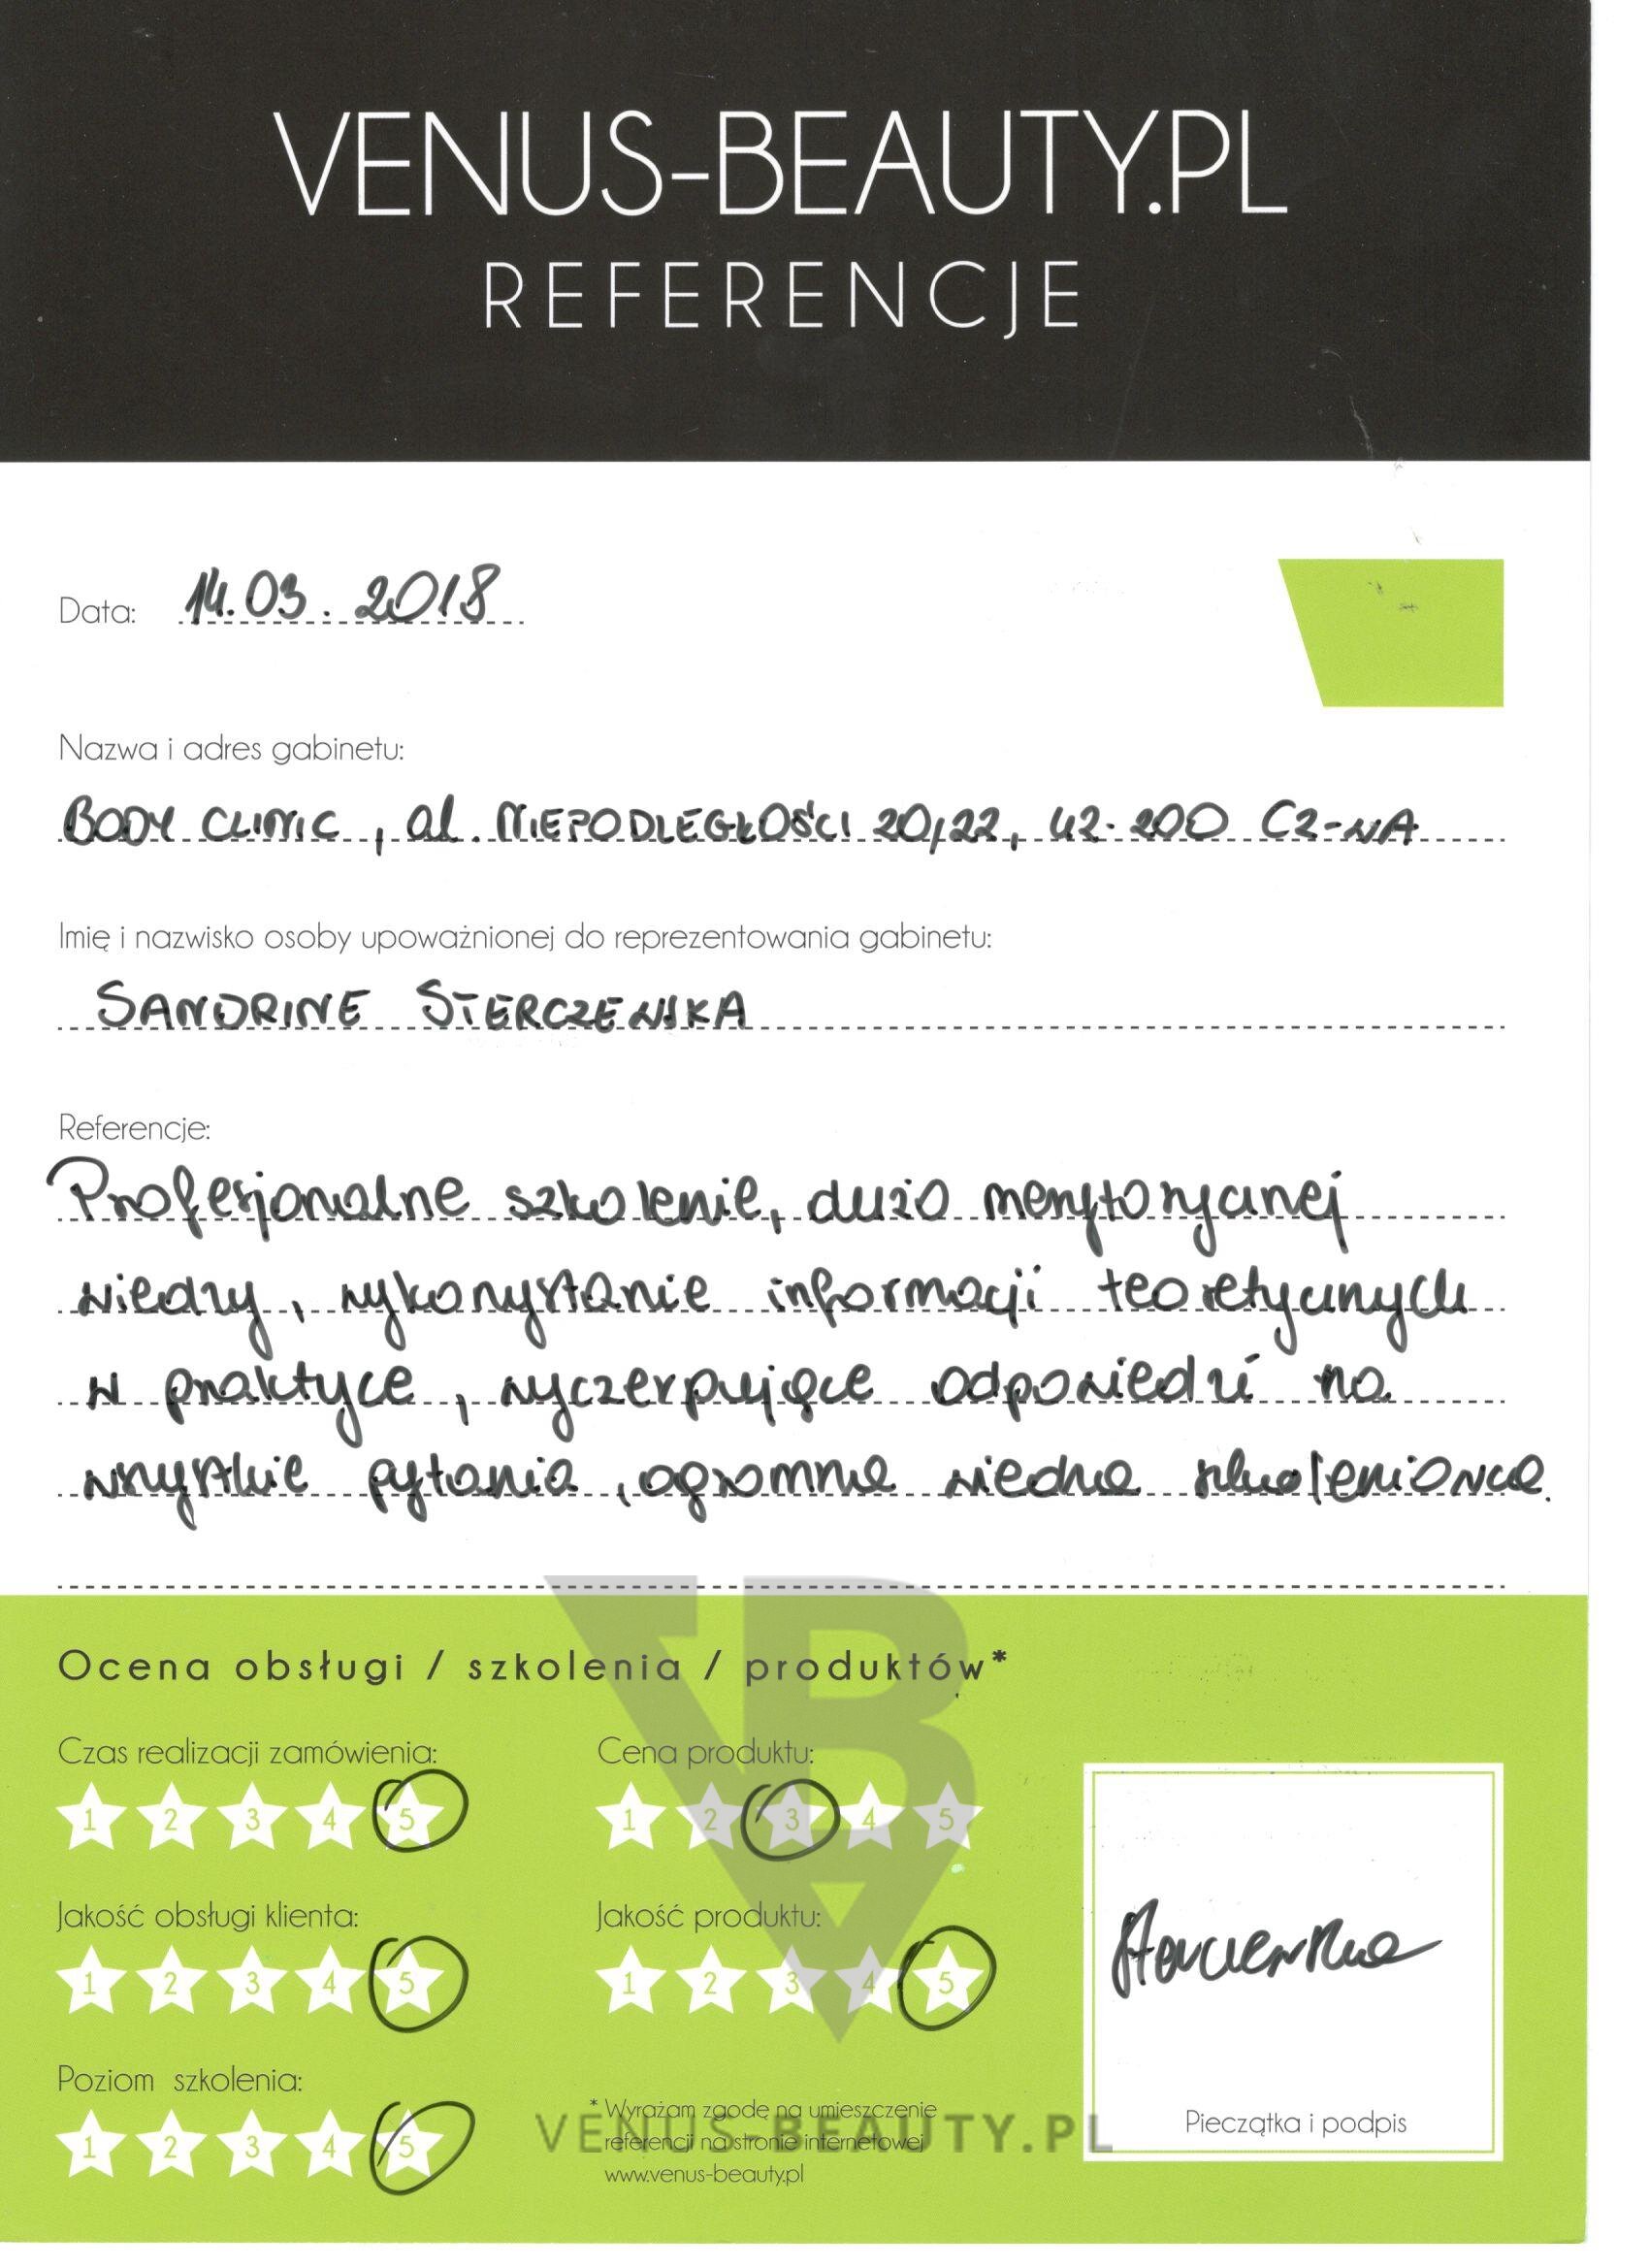 VENUS-BEAUTY.PL
REFERENCJE
Data: 14.03.2018
Nazwa i adres gabinetu:
BODY CLINIC, al. NIEPODLEGŁOŚCI 20/22, 42-200 CZ-WA
Imię i nazwisko osoby upoważnionej do reprezentowania gabinetu:
SANDRINE STERCZEWSKA
Referencje:
Profesjonalne szkolenie, dużo merytorycznej
wiedzy, wykorzystanie informacji teoretycznych
w praktyce, wyczerpujące odpowiedzi na
wszystkie pytania, ogromna wiedza szkoleniowca.
Ocena obsługi / szkolenia / produktów*
Czas realizacji zamówienia:
1 2 3 4 5
Cena produktu:
1 2 3 4 5
Jakość obsługi klienta:
1 2 3 4 5
Jakość produktu:
1 2 3 4 5
Poziom szkolenia:
1 2 3 4 5
* Wyrażam zgodę na umieszczenie
referencji na stronie internetowej
www.venus-beauty.pl
Sterczewska
Pieczątka i podpis
VB
VENUS-BEAUTY.PL